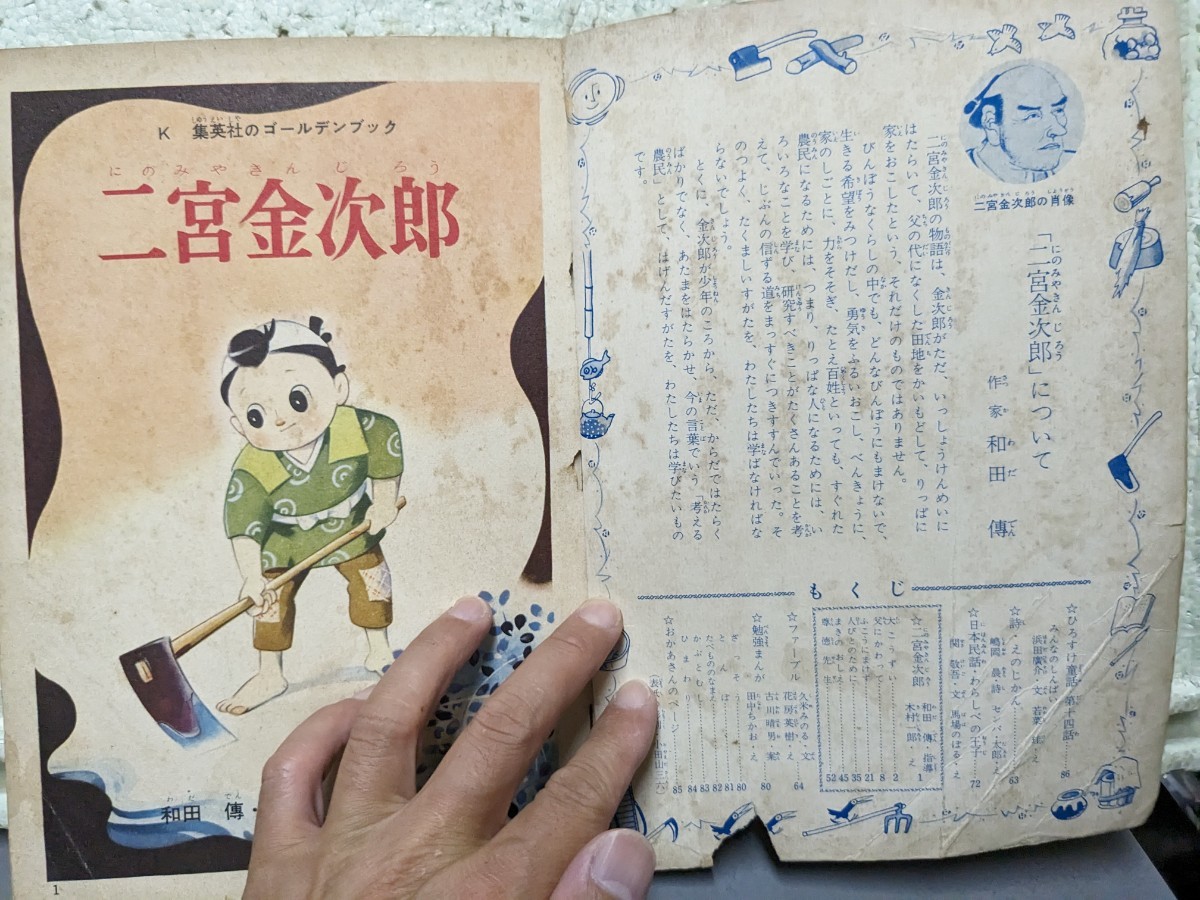 K 集英社のゴールデンブック
二宮金次郎
和田 傳・
1
二宮金次郎の肖像
「二宮金次郎」について
作家 和田 傳
二宮金次郎の物語は、金次郎がただ、いっしょうけんめいに
はたらいて、父の代になくした田地をかいもどして、りっぱに
家をおこしたという、それだけのものではありません。
びんぼうなくらしの中でも、どんなびんぼうにもまけないで、
生きる希望をみつけだし、勇気をふるいおこし、べんきょうに、
家のしごとに、力をそそぎ、たとえ百姓といっても、すぐれた
農民になるためには、つまり、りっぱな人になるためには、い
ろいろなことを学び、研究すべきことがたくさんあることを考
えて、じぶんの信ずる道をまっすぐにつきすすんでいった。そ
のつよく、たくましいすがたを、わたしたちは学ばなければな
らないでしょう。
とくに、金次郎が少年のころから、ただ、からだではたらく
ばかりでなく、あたまをはたらかせ、今の言葉でいう「考える
農民」として、はげんだすがたを、わたしたちは学びたいもの
です。
もくじ
☆ひろすけ童話 第十四話…86
みんなのしんぱい
浜田廣介・文 若菜 珪・え
☆詩・えのじかん…63
嶋岡 晨・詩 センバ・太郎
☆日本民話・わらしべの王子…72
関 敬吾・文 馬場のぼる・え
☆二宮金次郎
和田 傳・指導
木村 郎 え…1
大こうずい…2
父にかわって…8
ふこうにまけず…21
人びとのために…35
まきのおしし…45
尊徳先生…52
☆ファーブル…64
久米みのる・文
花房英樹・え
☆勉強まんが…80
古川晴男・案
田中ちかお・え
ぞう…80
とんぼ…81
たべもののなまえ…82
かぶとむし…83
ひまわり…84
☆おかあさんのページ…85